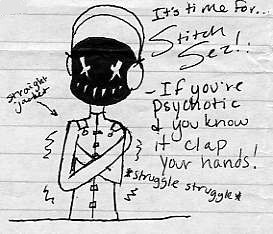 It's time for...
Stitch
Sez!:
- If you're
psychotic
& you know
it clap
your hands!
*struggle struggle*
straight
jacket